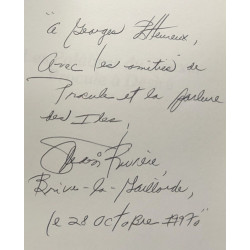 "à Georges L'Heureux,
Avec les amitiés de
Procule et la parlure
des Iles,
Rivière
Brive-la-Gaillarde,
le 28 octobre 1970"